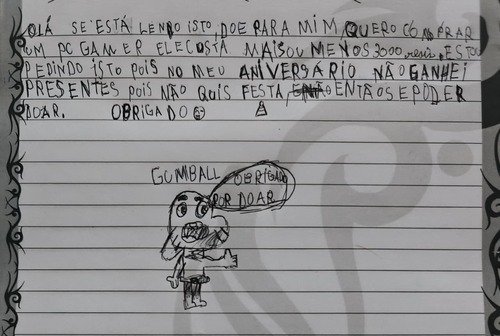 OLÁ SE ESTÁ LENDO ISTO, DOE PARA MIM, QUERO COMPRAR
UM PC GAMER ELE CUSTA MAIS OU MENOS 3000 reais, ESTOU
PEDINDO ISTO POIS NO MEU ANIVERSÁRIO NÃO GANHEI
PRESENTES POIS NÃO QUIS FESTA, ENTÃO SE PODER
DOAR. OBRIGADO
GUMBALL
OBRIGADO
POR DOAR